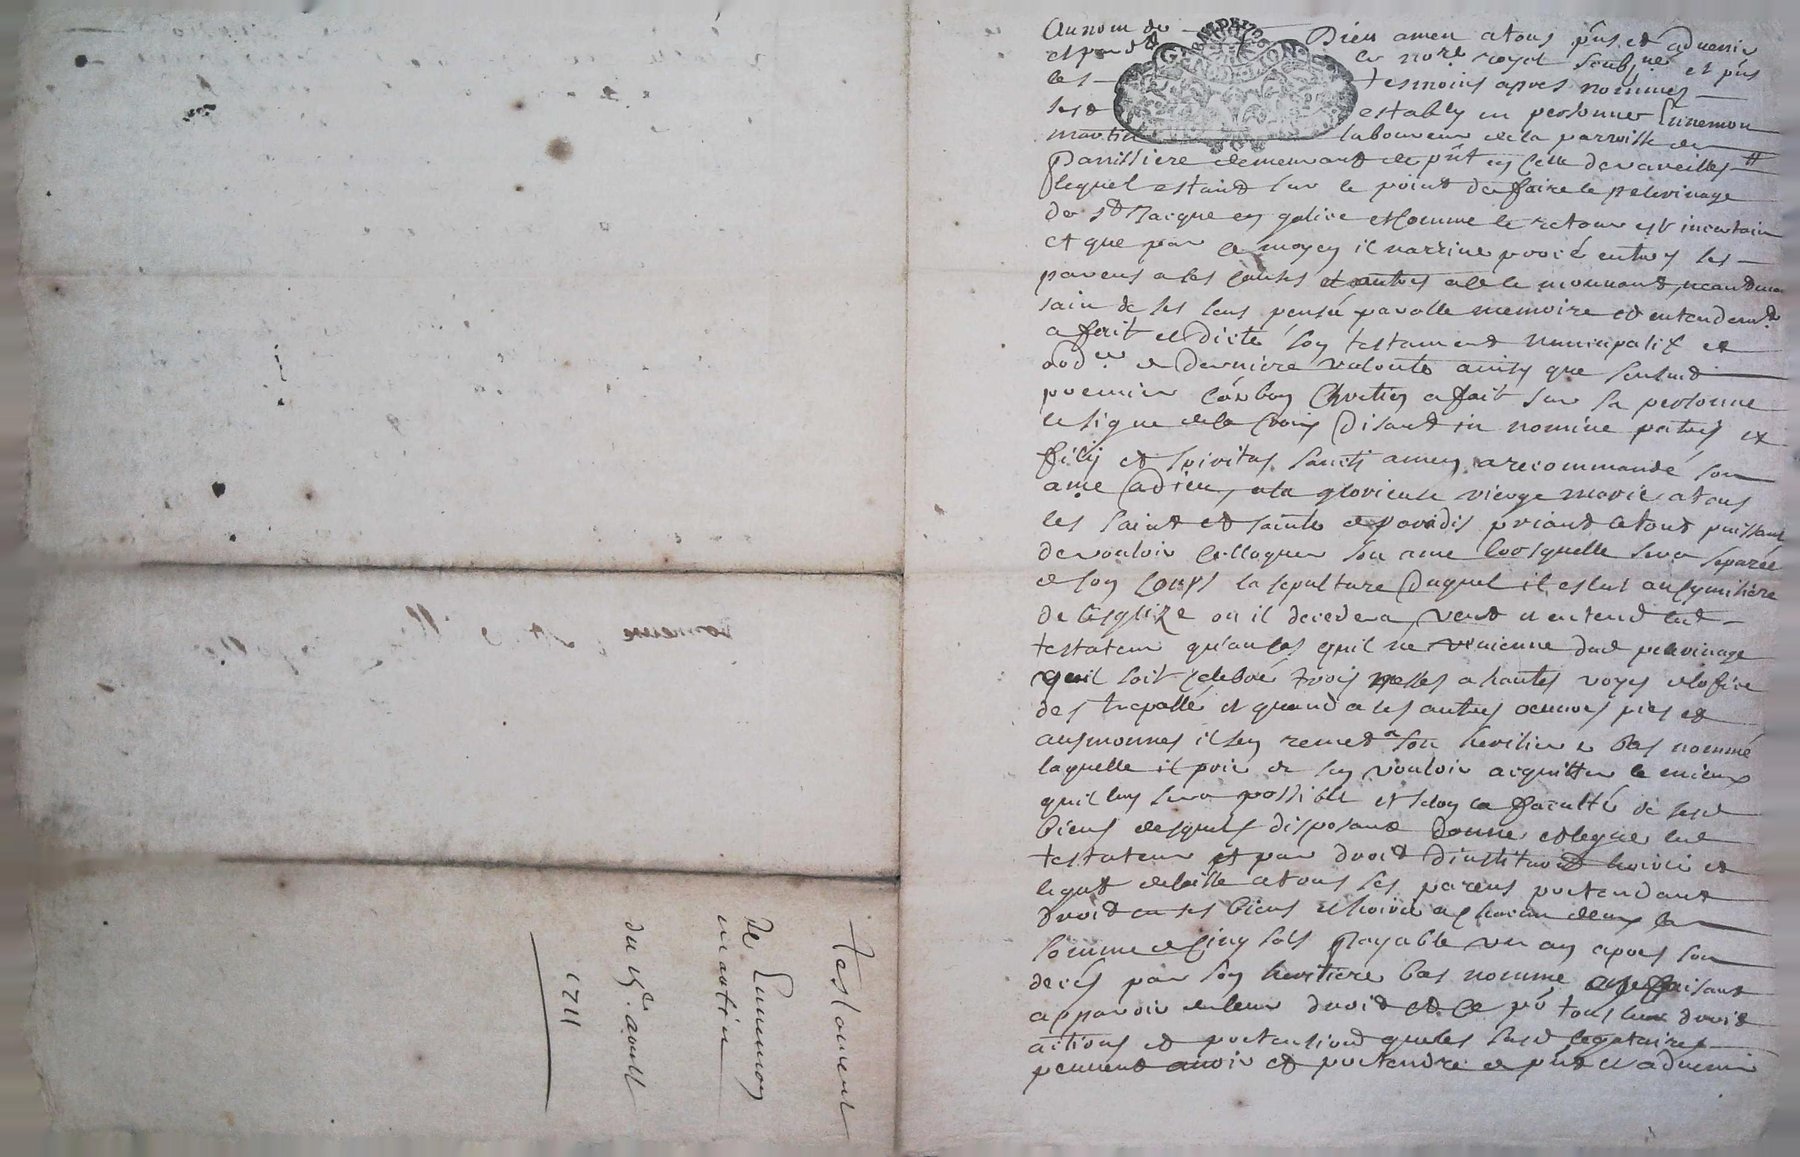 testament
de Eunemon
martin
du 15e. aoust
1711
Au nom de Dieu amen a tous pns et advenir
et par d le nore royal soubsne et pns
les tesmoins apres nommes
sest estably en personne Ennemon
martin laboureur de la parroisse de
Parnissiere demeurant de pnt en celle de
lequel estant sur le point de faire le pelerinage
de st Jacque en galice et comme le retour est incertain
et que par ce moyen il narrive procé entre ses
parens a ses causes et autres a le mouvant, neantmoin
sain de ses sens pensée parolle memoire et entendemt
a fait et dicte son testament nuncupatif et
ordre et derniere volonte ainsy que sensuit
premier com bon Chretien a fait sur sa personne
le signe de la Croix Disant in nomine patris et
filij et spiritus sancti amen, a recommandé son
ame a Dieu, a la glorieuse vierge marie a tous
les saint et sainte de paradis priant le tout puissant
de vouloir colloquer son ame lorsquelle sera separée
de son corps la sepulture duquel il eslut au symitiere
de lesglize ou il decedera, veut et entend led
testateur quau cas quil ne revienne dud pelerinage
quil soit celebré trois messes a hautes voyes a lofice
des trepassé et quand a ses autres oeuvres pies et
ausmonnes il sen remet a son heritier e bas nommé
laquelle il prie de sen vouloir acquitter le mieux
quil luy sera possible et selon la faculté de sesd
biens desquels disposant donne et legue led
testateur et par droit dinstitution hoirie et
legat delaisse a tous ses parens pretendant
droit en ses biens et hoirie a chacun deux la
somme de cinq sols payable un an apres son
decés par son heritiere bas nommé en faisant
apparoir de leur droit et ce pr tous leur droit
actions et pretentions que les susd legataires
peuvent avoir et pretendre de pnt et advenir